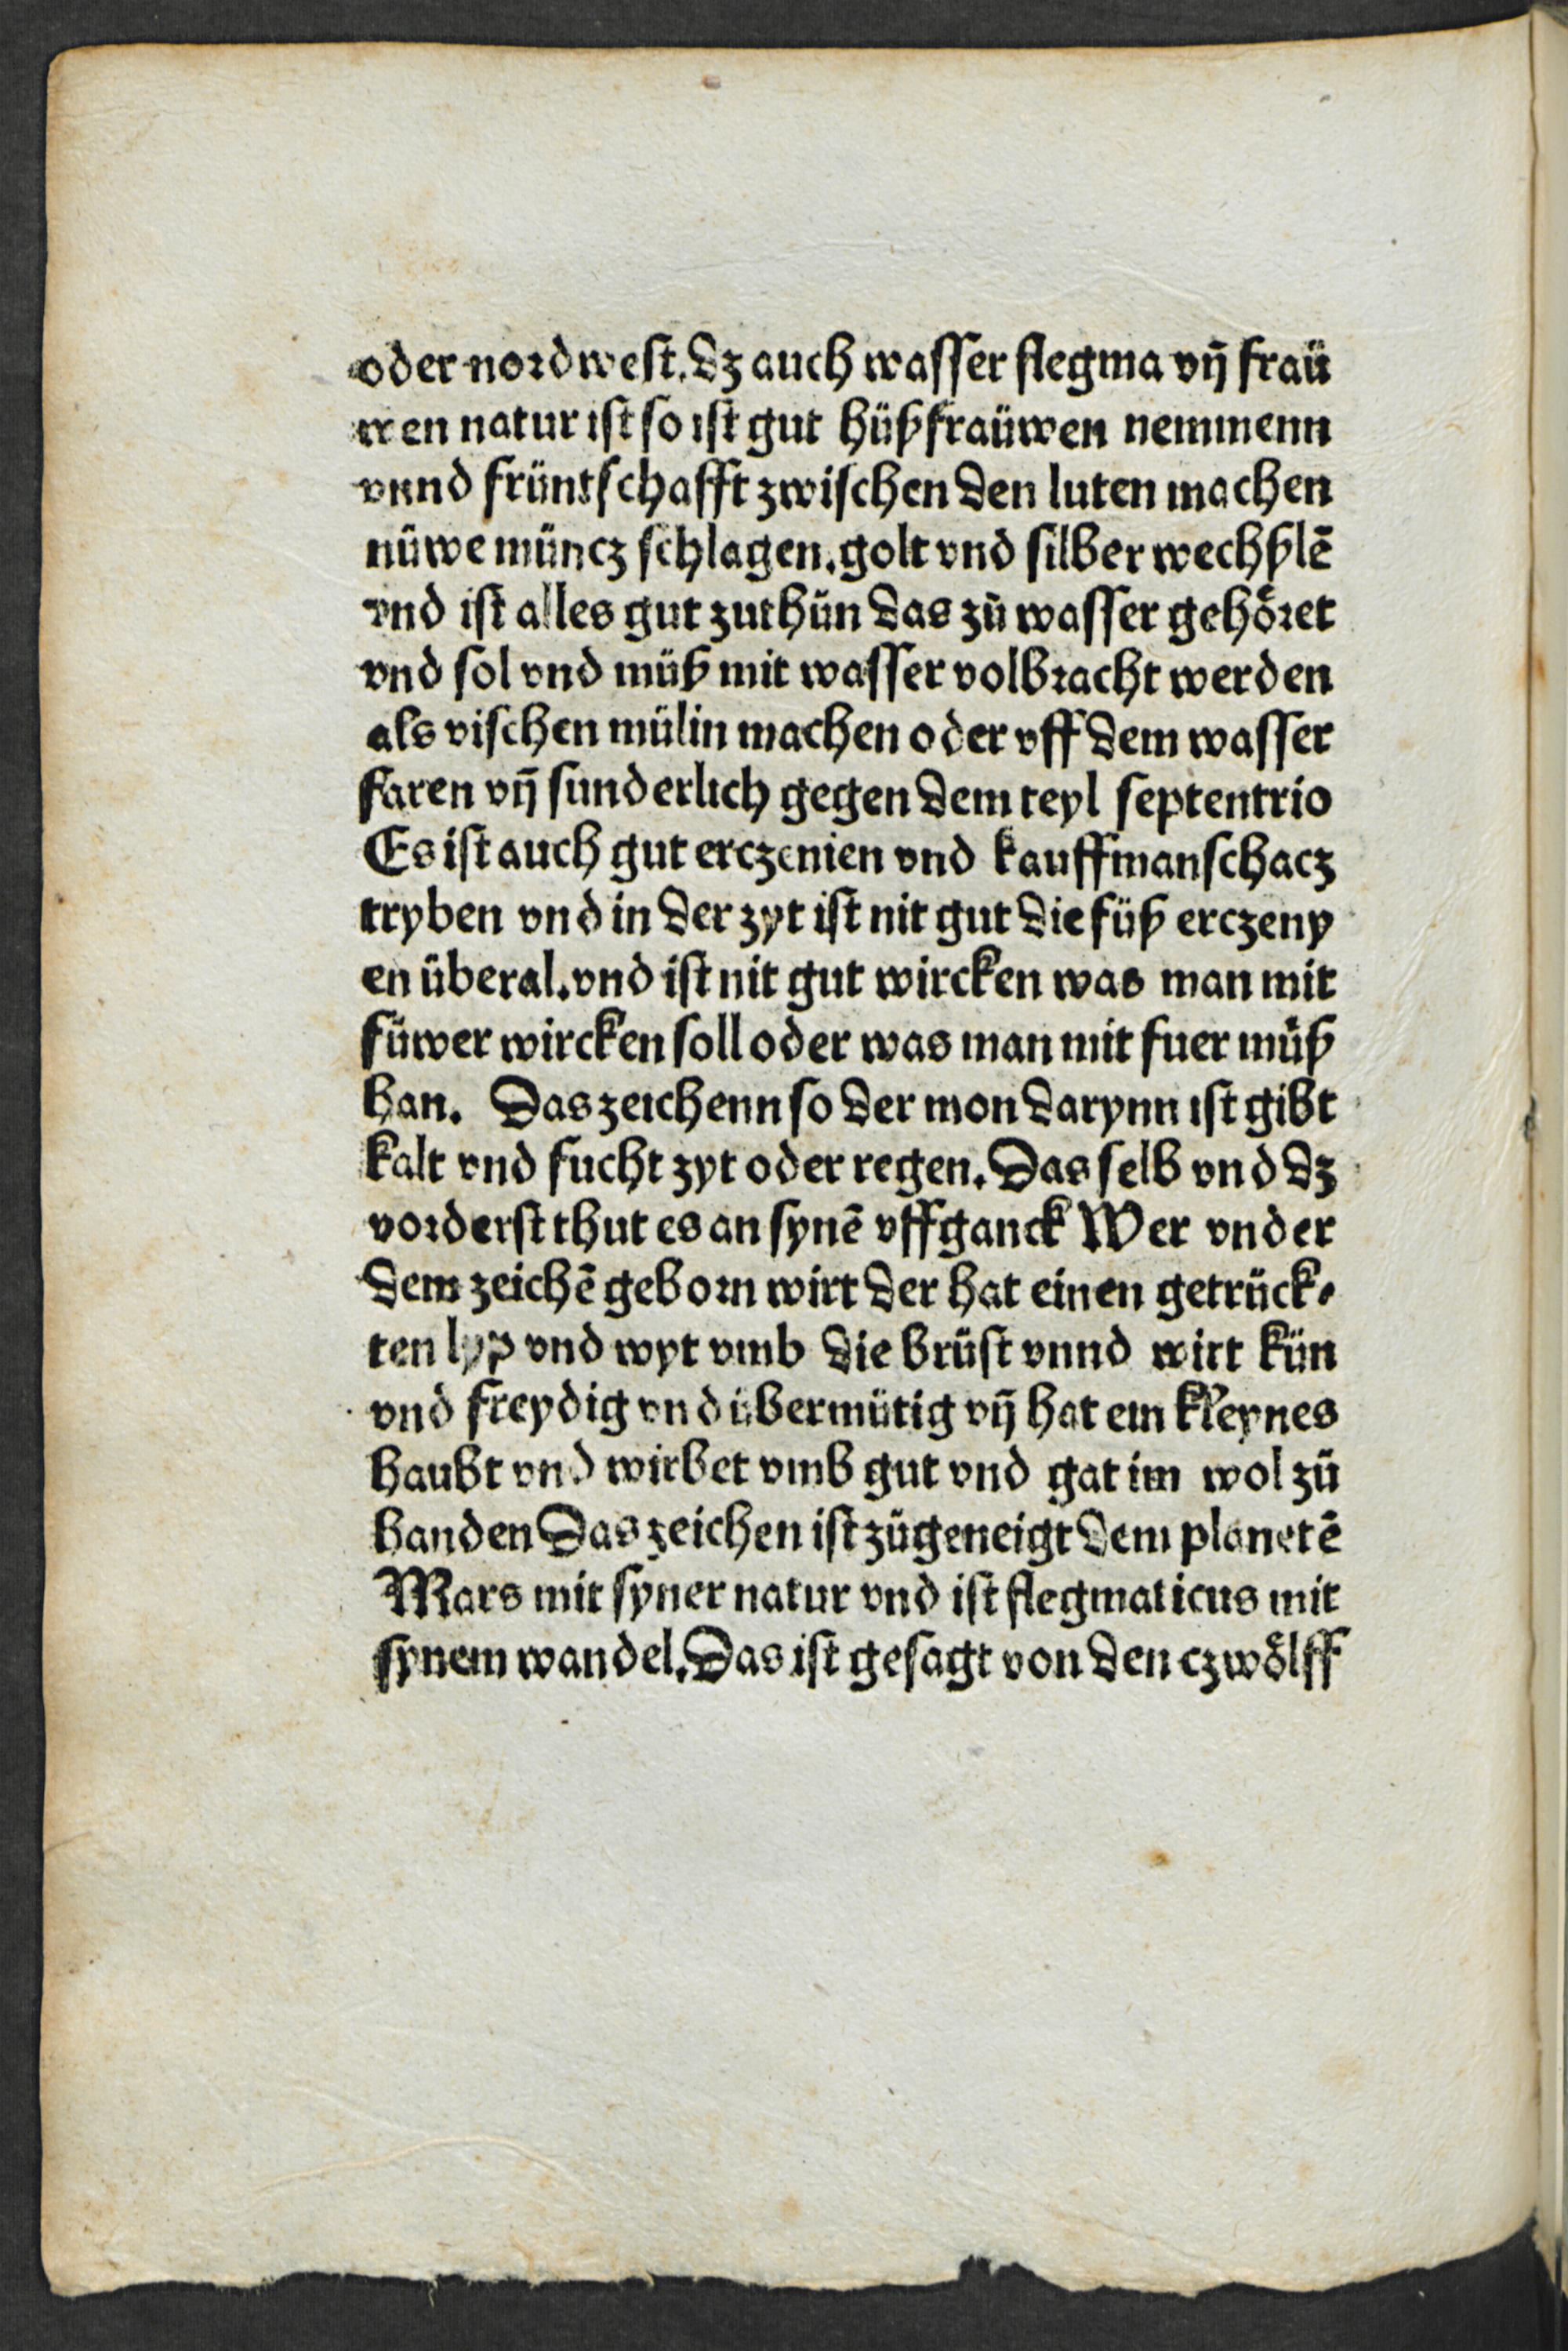 oder nordwest. dz auch wasser flegma vn̄ fraü
wen natur ist so ist gut hüß fraüwen nemmenn
vnnd früntschafft zwischen den luten machen
nüwe müncz schlagen. golt vnd silber wechßlē
vnd ist alles gut zuthün das zü wasser gehöret
vnd sol vnd müß mit wasser volbracht werden
als vischen mülin machen oder vff dem wasser
faren vn̄ sunderlich gegen dem teyl septentrio
Es ist auch gut erczenien vnd kauffmanschacz
tryben vnd in der zyt ist nit gut die füß erczeny
en überal. vnd ist nit gut wircken was man mit
füwer wircken soll oder was man mit fuer müß
han. Das zeichenn so der mon darynn ist gibt
kalt vnd fucht zyt oder regen. Das selb vnd dz
vorderst thut es an synē vffganck Wer vnder
dem zeichē geborn wirt der hat einen getrück⸗
ten lyp vnd wyt vmb die brüst vnnd wirt kün
vnd freydig vnd übermütig vn̄ hat ein kleynes
haubt vnd wirbet vmb gut vnd gat im wol zü
handen Das zeichen ist zügeneigt dem planetē
Mars mit syner natur vnd ist flegmaticus mit
synem wandel. Das ist gesagt von den czwölff